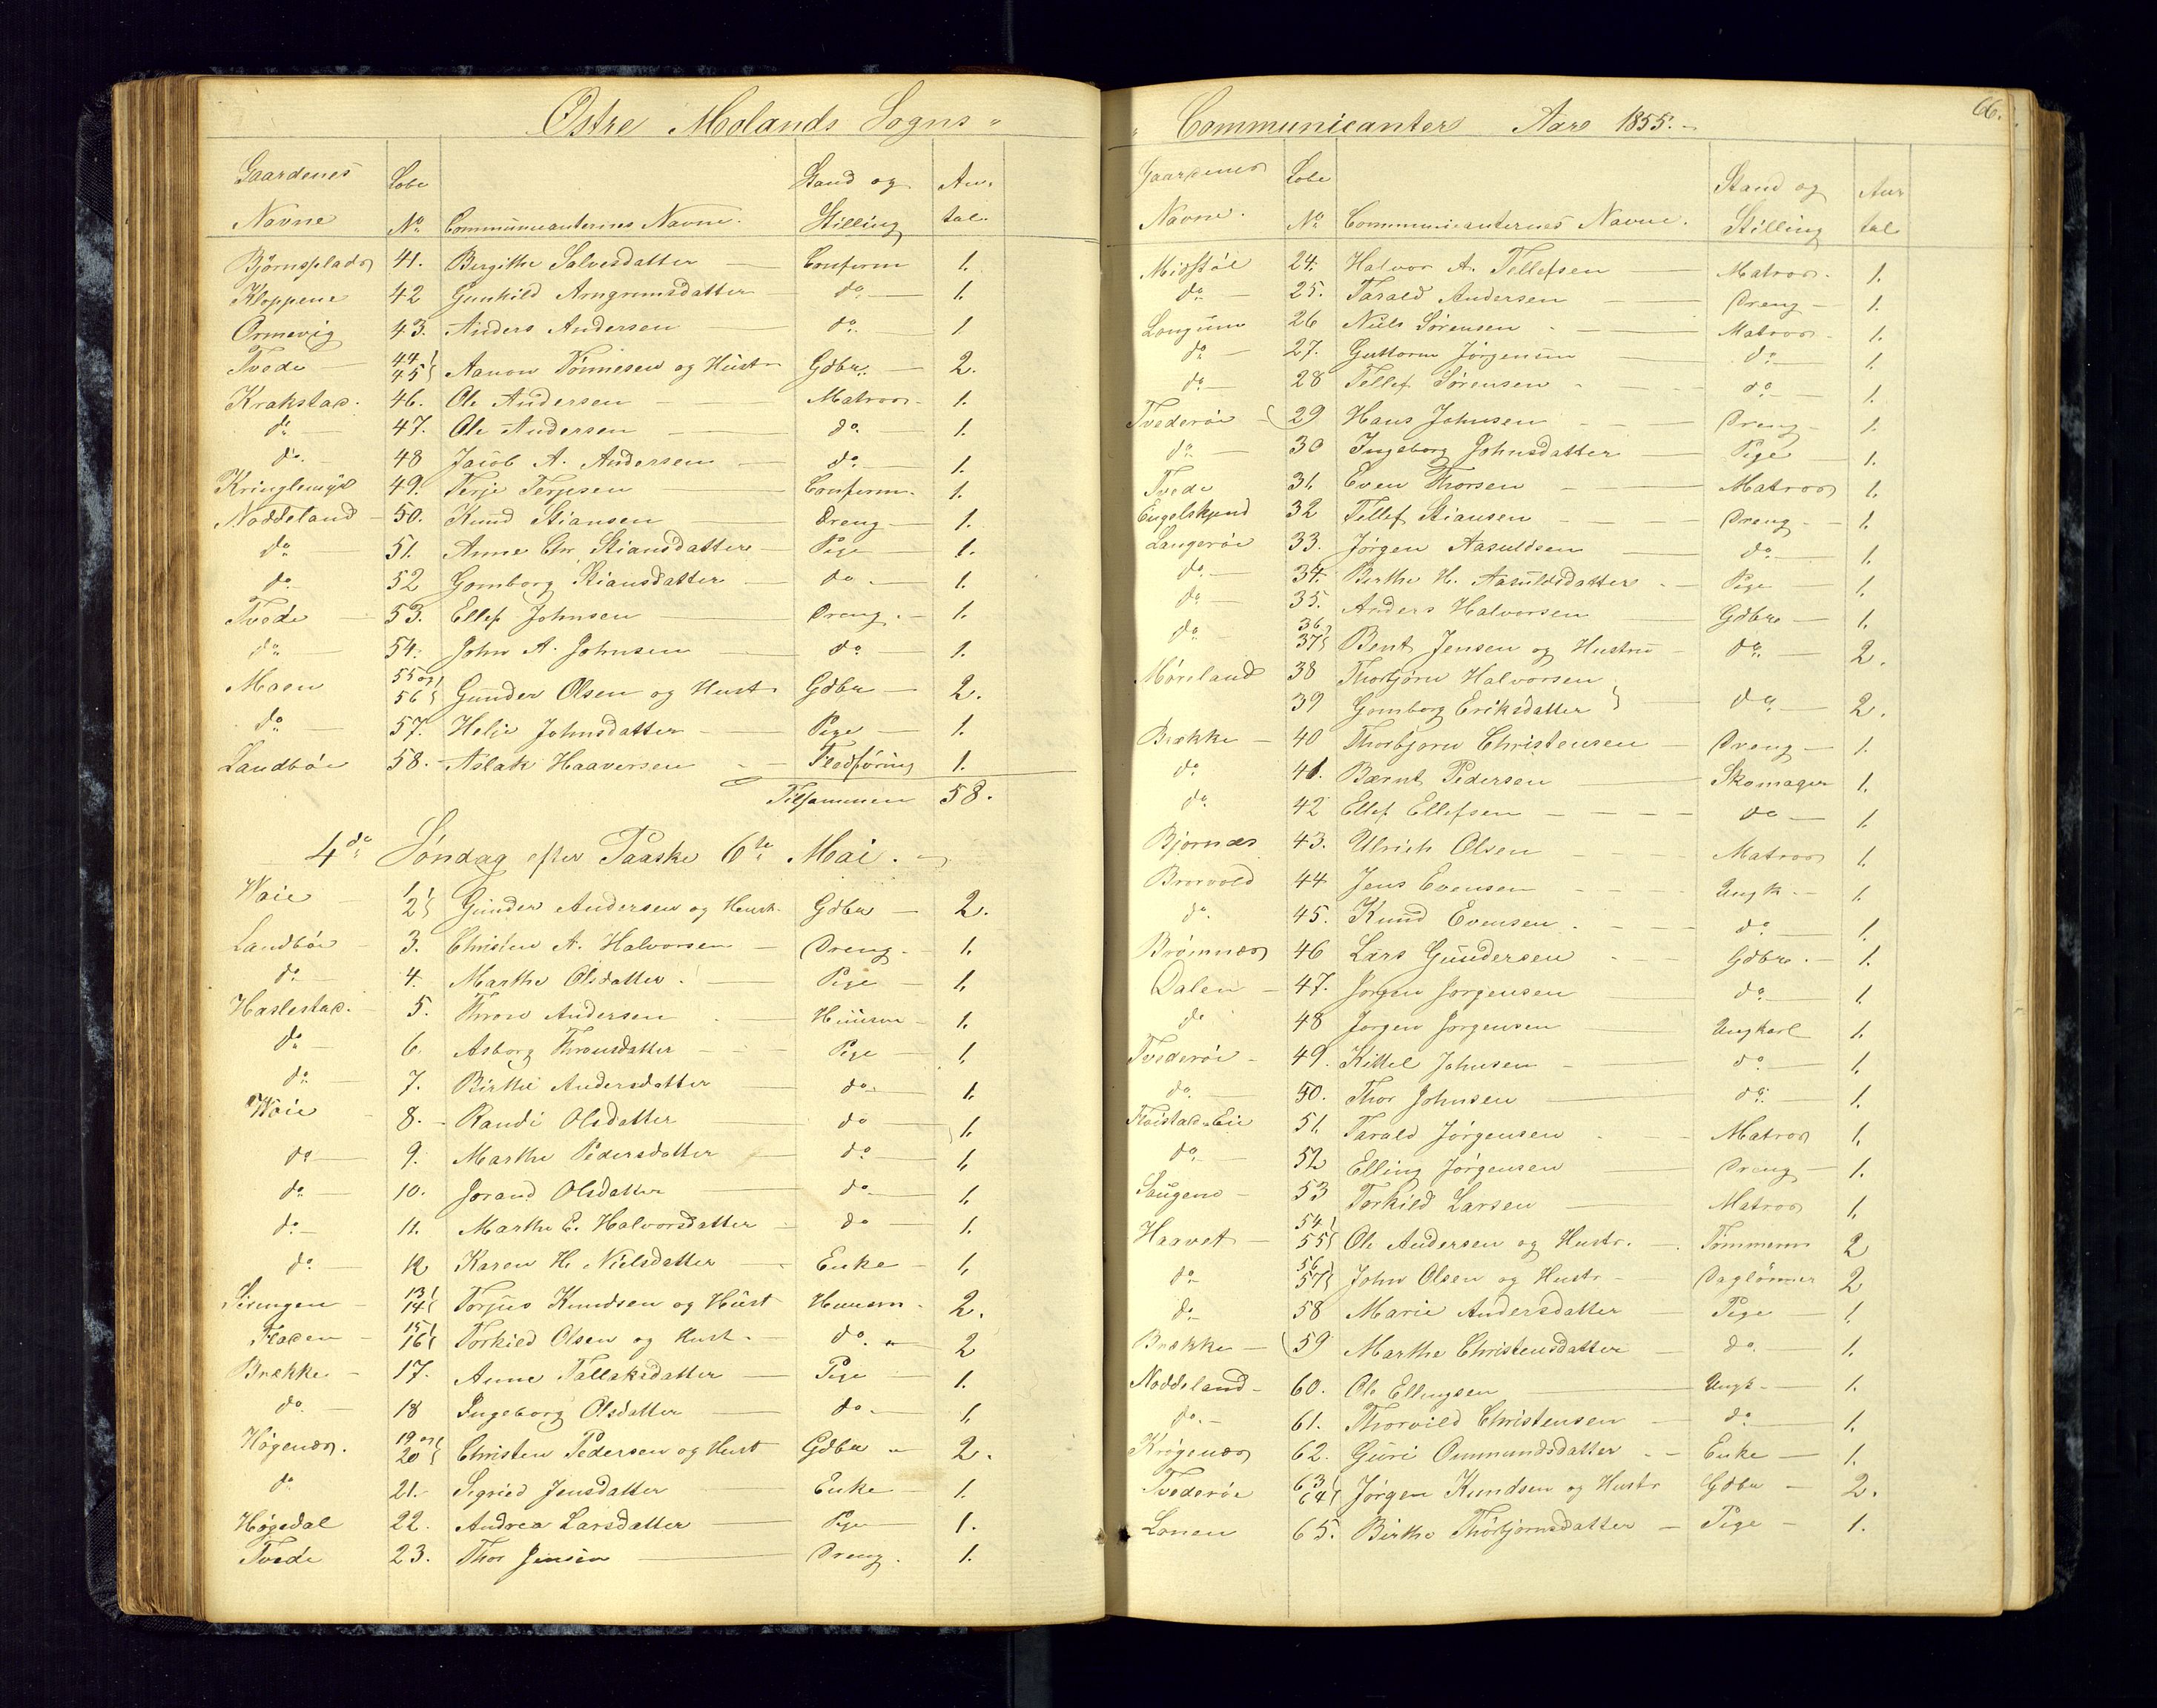 Østre Molands Sogns "
Gaardenes Løbe Stand og An-
Navne No Communicanternes Navne. Stilling tal.
Bjørnsplads 41. Bergithe Salvesdatter — Conferm 1.
Kloppene 42 Gunhild Arngrimsdatter — do — 1.
Ormevig 43. Anders Andersen — do. 1.
Tvede — 44 45 Aanon Tønnesen og Hustr Gdbr. — 2.
Krakstad. 46. Ole Andersen — Matros 1.
do — 47. Ole Andersen — do. 1.
do. — 48 Jacob A. Andersen — do. 1.
Kringlemyr 49. Terje Terjesen — Conferm. 1.
Noddeland — 50. Knud Stiansen Dreng — 1.
do — 51. Anne Chr. Stiansdatter — Pige — 1.
do — 52 Gomborg Stiansdatter — do — 1.
Tvede — 53. Ellef Johnsen — Dreng. — 1.
do — 54. John A. Johnsen — do — 1.
Moen 55 og 56 Gunder Olsen og Hust. Gdbr — 2.
do — 57. Helje Johnsdatter — Pige — 1.
Landbøe 58. Aslak Haaversen — Fledføring 1.
Tilsammen 58.
4de Søndag efter Paaske 6te Mai.
Waie 1 2 Gunder Andersen og Hustr. Gdbr — 2.
Landbøe — 3. Christen A. Halvorsen — Dreng. — 1.
do — 4. Marthe Olsdatter. — Pige — 1.
Haslestad. 5. Thron Andersen Huusm — 1.
do — 6. Asborg Thronsdatter — Pige — 1.
do — 7. Birthe Andersdatter — do. — 1.
Waie — 8. Randi Olsdatter — do — 1.
do — 9. Marthe Pedersdatter do — 1.
do — 10. Jorand Olsdatter — do — 1.
do. — 11. Marthe E. Halvorsdatter — do — 1.
do — 12 Karen H. Nielsdatter — Enke — 1.
13 14 Torjus Knudsen og Hust Huusm. 2.
Fladen — 15 16 Torkild Olsen og Hust. — do. " 2
Brække — 17. Anne Tallaksdatter — Pige — 1.
do. — 18 Ingeborg Olsdatter — do — 1.
Høgenæs. 19 og 20 Christen Pedersen og Hust Gdbr " 2.
do 21. Sigried Jensdatter — Enke — 1.
Høgedal 22. Andrea Larsdatter — Pige — 1.
Tvede 23. Thor Jensen — Dreng. 1.
66.
" Communicanter Aar 1855. —
Gaardenes Løbe Stand og An-
Navne. No Communicanternes Navne. Stilling tal
Midstøl 24. Halvor A. Tellefsen — Matros. 1.
do — 25. Tarald Andersen — Dreng — 1.
Longum 26 Niels Sørensen — Matros. 1.
do — 27. Guttorm Jørgensen — do — 1.
do — 28 Tellef Sørensen — do — 1.
Tvederøe — 29 Hans Johnsen — Dreng — 1.
do — 30 Ingeborg Johnsdatter — Pige — 1.
Tvede 31. Even Thorsen — Matros 1.
Engelskjend 32 Tellef Stiansen — Dreng — 1.
Langerøe 33. Jørgen Aasuldsen — do — 1.
do. — 34. Birthe H. Aasuldsdatter — Pige — 1.
do — 35. Anders Halvorsen — Gdbr — 1.
do — 36 37 Bent Jensen og Hustru — do — 2.
Møreland 38 Thorbjørn Halvorsen
39 Gomborg Eriksdatter do — 2.
Brække — 40 Thorbjørn Christensen — Dreng — 1.
do 41. Bærnt Pedersen — Skomager 1.
do 42 Ellef Ellefsen — do — 1.
Bjørnæs 43. Ulrich Olsen — Matros 1.
44 Jens Evensen — Ungk. — 1.
do. 45. Knud Evensen. — do — 1.
Brømnæs 46 Lars Gundersen — Gdbr. — 1.
Dalen — 47. Jørgen Jørgensen — do — 1.
do 48 Jørgen Jørgensen — Ungkarl 1.
Tvederøe — 49. Kittel Johnsen — do — 1.
do. — 50. Thor Johnsen — do — 1.
Fløistad Eie 51. Tarald Jørgensen — Matros 1.
do — 52 Elling Jørgensen — Dreng — 1.
Saugene — 53 Torkild Larsen — Matros 1.
Haavet — 54 55 Ole Andersen og Hustr. — Tømmerm 2
do — 56 57 John Olsen og Hustr — Daglønner 2
do — 58 Marie Andersdatter — Pige — 1.
Brække — 59 Marthe Christensdatter — do. — 1.
Noddeland — 60. Ole Ellingsen — Ungk — 1.
do. — 61. Thorvild Christensen — do — 1.
Krøgenæs 62. Guri Ommundsdatter — Enke — 1.
Tvederøe 63 64 Jørgen Knudsen og Hustr Gdbr — 2.
Lonen 65. Birthe Thorbjørnsdatter — Pige — 1.